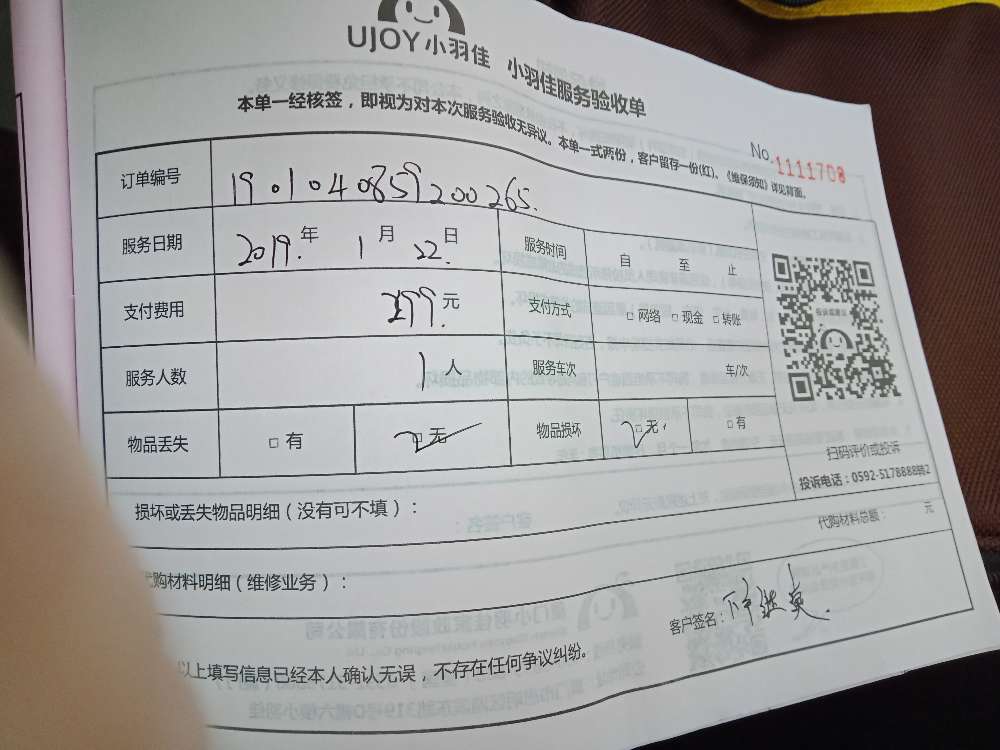 UJOY小羽佳 小羽佳服务验收单
本单一经核签，即视为对本次服务验收无异议。本单一式两份，客户留存一份(红)、《维保须知》详见背面。
No.1111708
订单编号 1901040859200265.
服务日期 2019.年 1月 22.日 服务时间 自 至 止
支付费用 299.元 支付方式 □网络 □现金 □转账
服务人数 1人 服务车次 车/次
物品丢失 □有 □无 物品损坏 □无 □有
扫码评价或投诉
投诉电话：0592-5178888转2
损坏或丢失物品明细（没有可不填）：
代购材料总额： 元
代购材料明细（维修业务）：
客户签名：
以上填写信息已经本人确认无误，不存在任何争议纠纷。